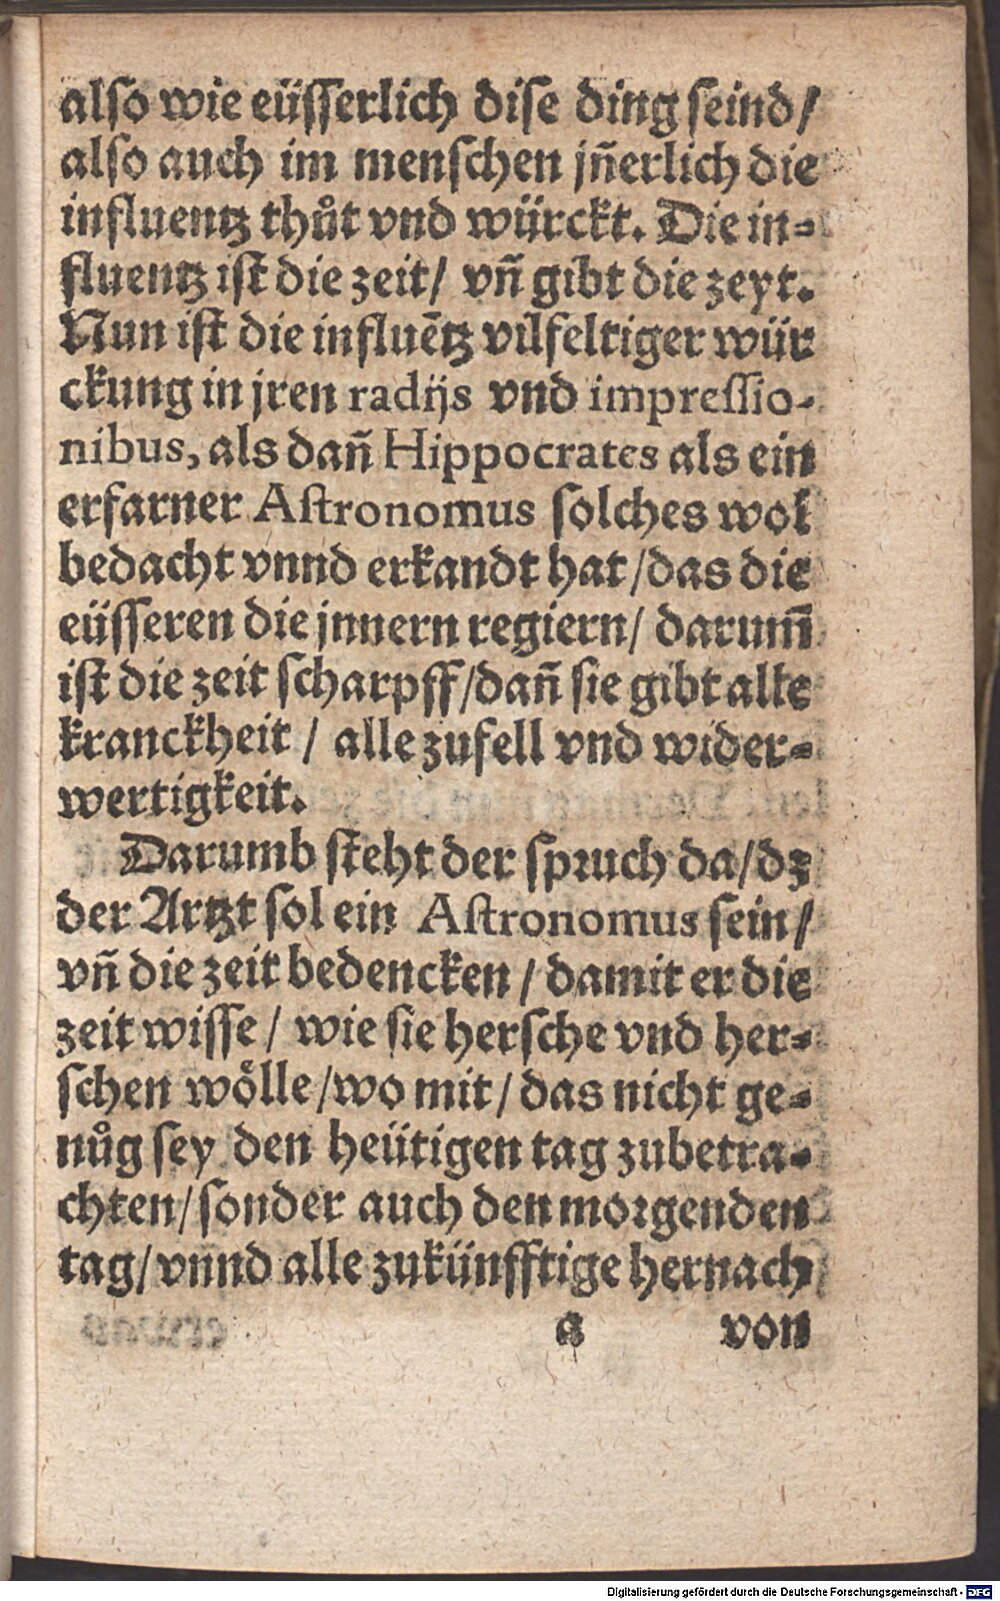 also wie eüsserlich dise ding seind/
also auch im menschen jn̄erlich die
influentz thůt vnd würckt. Die in-
fluentz ist die zeit/ vn̄ gibt die zeyt.
Nun ist die influētz vilfeltiger wür
ckung in jren radijs vnd impressio-
nibus, als dan̄ Hippocrates als ein
erfarner Astronomus solches wol
bedacht vnnd erkandt hat/das die
eüsseren die jnnern regiern/ darum̄
ist die zeit scharpff/dan̄ sie gibt alle
kranckheit / alle zufell vnd wider-
wertigkeit.
Darumb steht der spruch da/dz
der Artzt sol ein Astronomus sein/
vn̄ die zeit bedencken / damit er die
zeit wisse/ wie sie hersche vnd her-
schen wölle/wo mit/ das nicht ge-
nůg sey den heütigen tag zubetra-
chten/sonder auch den morgenden
tag/vnnd alle zukünfftige hernach
G von
Digitalisierung gefördert durch die Deutsche Forschungsgemeinschaft - DFG